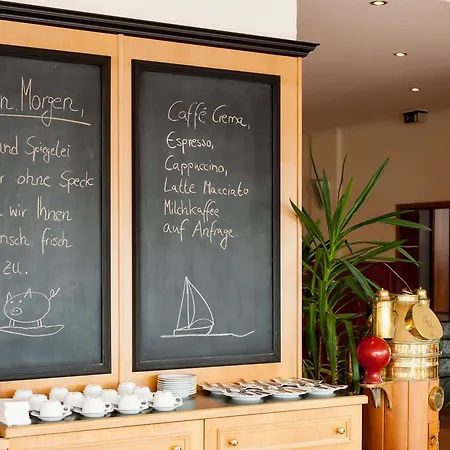 n Morgen,
und Spiegelei
r ohne Speck
wir Ihnen
nsch frisch
zu.
Caffé Crema,
Espresso,
Cappuccino,
Latte Macciato
Milchkaffee
auf Anfrage.